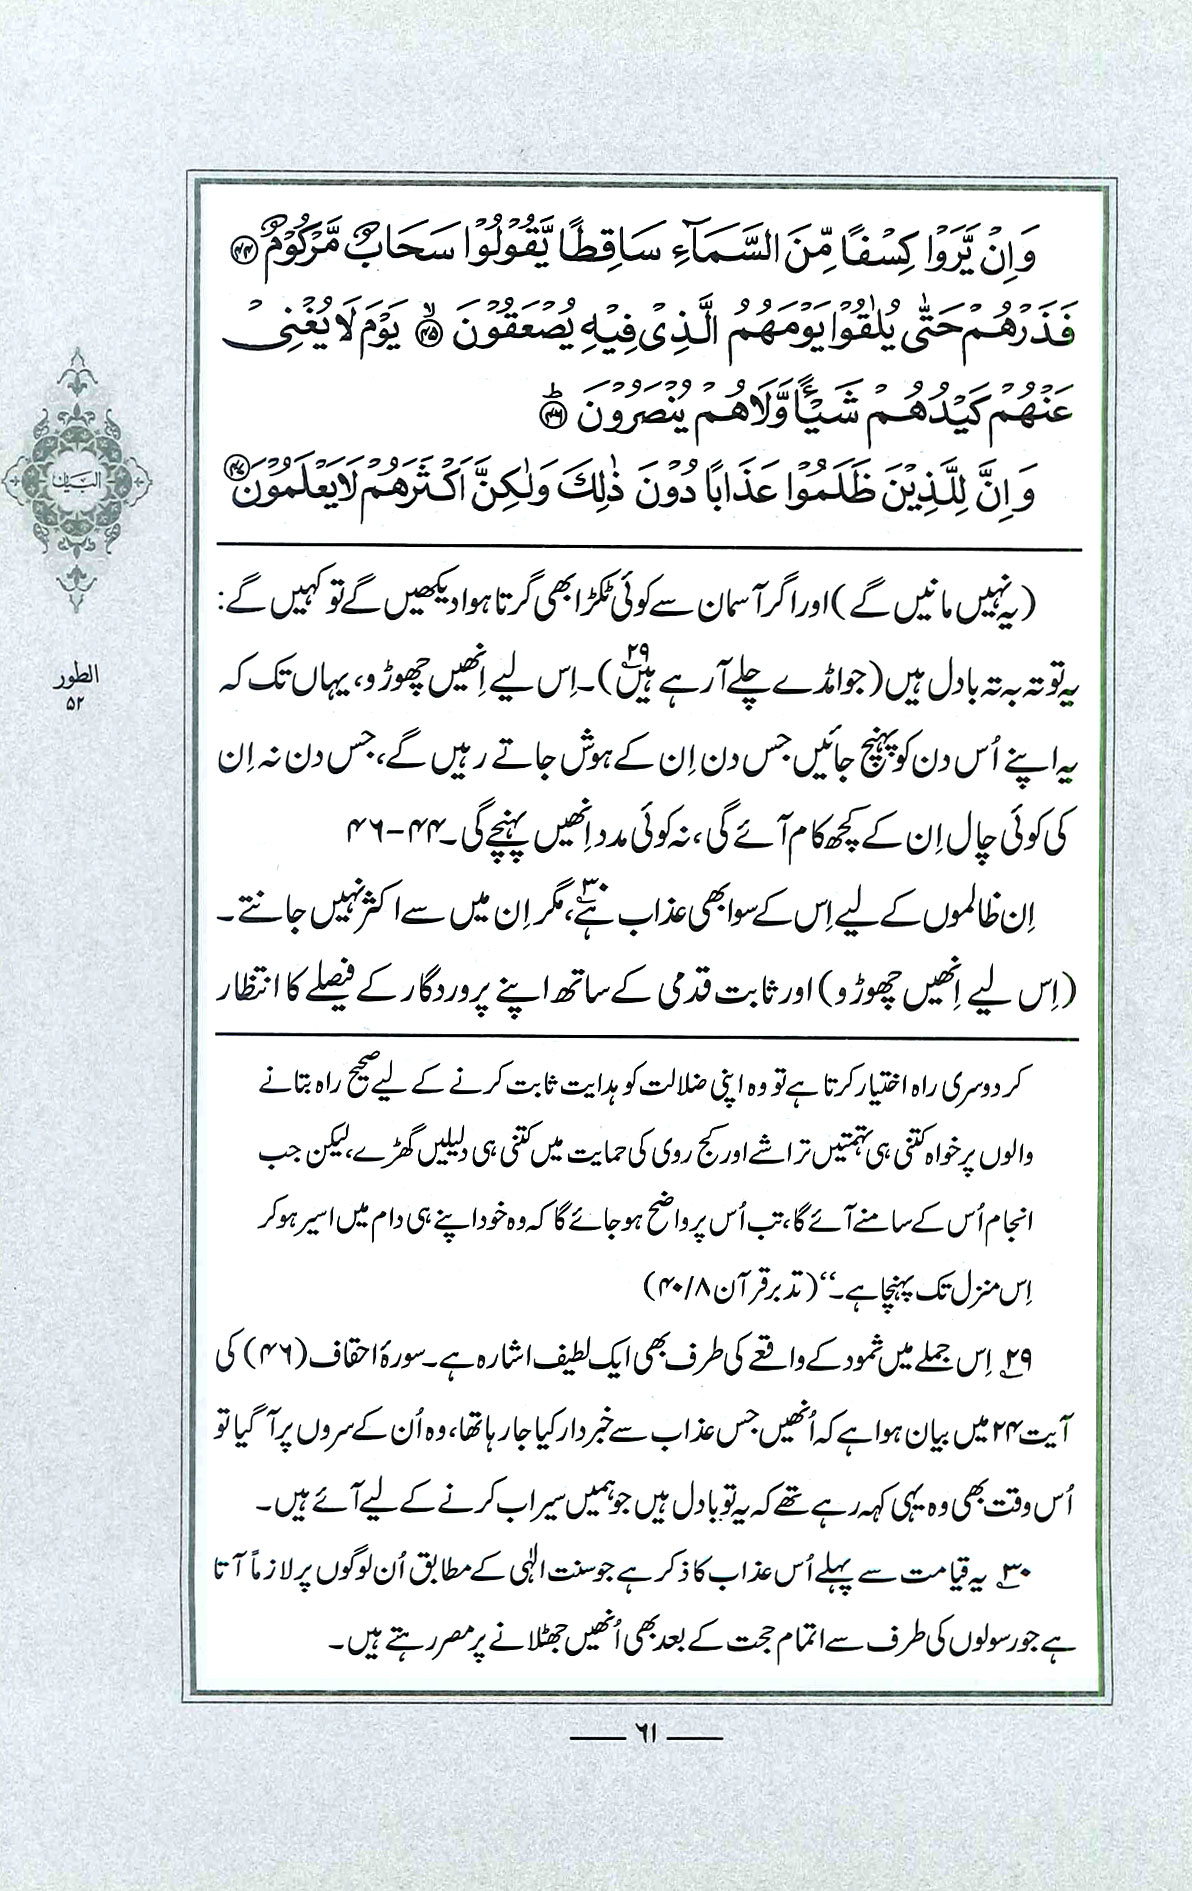 وَاِنْ يَّرَوْا كِسْفًا مِّنَ السَّمَآءِ سَاقِطًا يَّقُوْلُوْا سَحَابٌ مَّرْكُوْمٌ ﴿۴۴﴾
فَذَرْهُمْ حَتّٰى يُلٰقُوْا يَوْمَهُمُ الَّذِىْ فِيْهِ يُصْعَقُوْنَ ﴿۴۵﴾ۙ يَوْمَ لَا يُغْنِىْ
عَنْهُمْ كَيْدُهُمْ شَيْـًٔا وَّلَا هُمْ يُنْصَرُوْنَ ﴿۴۶﴾ؕ
وَاِنَّ لِلَّذِيْنَ ظَلَمُوْا عَذَابًا دُوْنَ ذٰلِكَ وَلٰكِنَّ اَكْثَرَهُمْ لَا يَعْلَمُوْنَ ﴿۴۷﴾
(یہ نہیں مانیں گے) اور اگر آسمان سے کوئی ٹکڑا بھی گرتا ہوا دیکھیں گے تو کہیں گے:
یہ تو تہ بہ تہ بادل ہیں (جو امڈے چلے آ رہے ہیں۲۹)۔ اِس لیے اِنھیں چھوڑو، یہاں تک کہ
یہ اپنے اُس دن کو پہنچ جائیں جس دن اِن کے ہوش جاتے رہیں گے، جس دن نہ اِن
کی کوئی چال اِن کے کچھ کام آئے گی، نہ کوئی مدد اِنھیں پہنچے گی۔ ۴۴-۴۶
اِن ظالموں کے لیے اِس کے سوا بھی عذاب ہے۳۰، مگر اِن میں سے اکثر نہیں جانتے۔
(اِس لیے اِنھیں چھوڑو) اور ثابت قدمی کے ساتھ اپنے پروردگار کے فیصلے کا انتظار
کر دوسری راہ اختیار کرتا ہے تو وہ اپنی ضلالت کو ہدایت ثابت کرنے کے لیے صحیح راہ بتانے
والوں پر خواہ کتنی ہی تہمتیں تراشے اور کج روی کی حمایت میں کتنی ہی دلیلیں گھڑے، لیکن جب
انجام اُس کے سامنے آئے گا، تب اُس پر واضح ہو جائے گا کہ وہ خود اپنے ہی دام میں اسیر ہو کر
اِس منزل تک پہنچا ہے۔‘‘ (تدبر قرآن ۸/ ۴۰)
۲۹؎ اِس جملے میں ثمود کے واقعے کی طرف بھی ایک لطیف اشارہ ہے۔ سورۂ احقاف (۴۶) کی
آیت ۲۴ میں بیان ہوا ہے کہ اُنھیں جس عذاب سے خبردار کیا جا رہا تھا، وہ اُن کے سروں پر آ گیا تو
اُس وقت بھی وہ یہی کہہ رہے تھے کہ یہ تو بادل ہیں جو ہمیں سیراب کرنے کے لیے آئے ہیں۔
۳۰؎ یہ قیامت سے پہلے اُس عذاب کا ذکر ہے جو سنت الٰہی کے مطابق اُن لوگوں پر لازماً آتا
ہے جو رسولوں کی طرف سے اتمام حجت کے بعد بھی اُنھیں جھٹلانے پر مصر رہتے ہیں۔
البیان
الطور
۵۲
۶۱